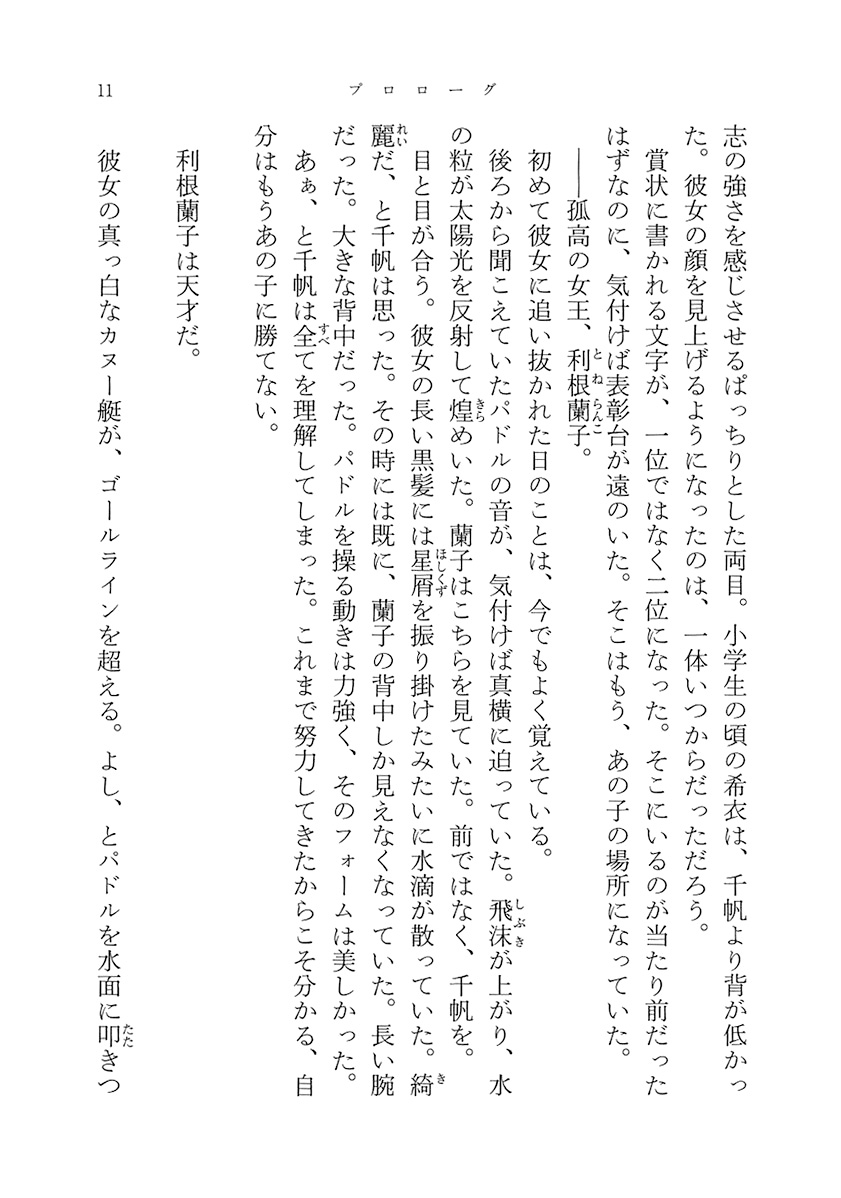 プロローグ
11
志の強さを感じさせるぱっちりとした両目。小学生の頃の希衣は、千帆より背が低かっ
た。彼女の顔を見上げるようになったのは、一体いつからだっただろう。
賞状に書かれる文字が、一位ではなく二位になった。そこにいるのが当たり前だった
はずなのに、気付けば表彰台が遠のいた。そこはもう、あの子の場所になっていた。
――孤高の女王、利根蘭子。
初めて彼女に追い抜かれた日のことは、今でもよく覚えている。
後ろから聞こえていたパドルの音が、気付けば真横に迫っていた。飛沫が上がり、水
の粒が太陽光を反射して煌めいた。蘭子はこちらを見ていた。前ではなく、千帆を。
目と目が合う。彼女の長い黒髪には星屑を振り掛けたみたいに水滴が散っていた。綺
麗だ、と千帆は思った。その時には既に、蘭子の背中しか見えなくなっていた。長い腕
だった。大きな背中だった。パドルを操る動きは力強く、そのフォームは美しかった。
あぁ、と千帆は全てを理解してしまった。これまで努力してきたからこそ分かる、自
分はもうあの子に勝てない。
利根蘭子は天才だ。
彼女の真っ白なカヌー艇が、ゴールラインを超える。よし、とパドルを水面に叩きつ